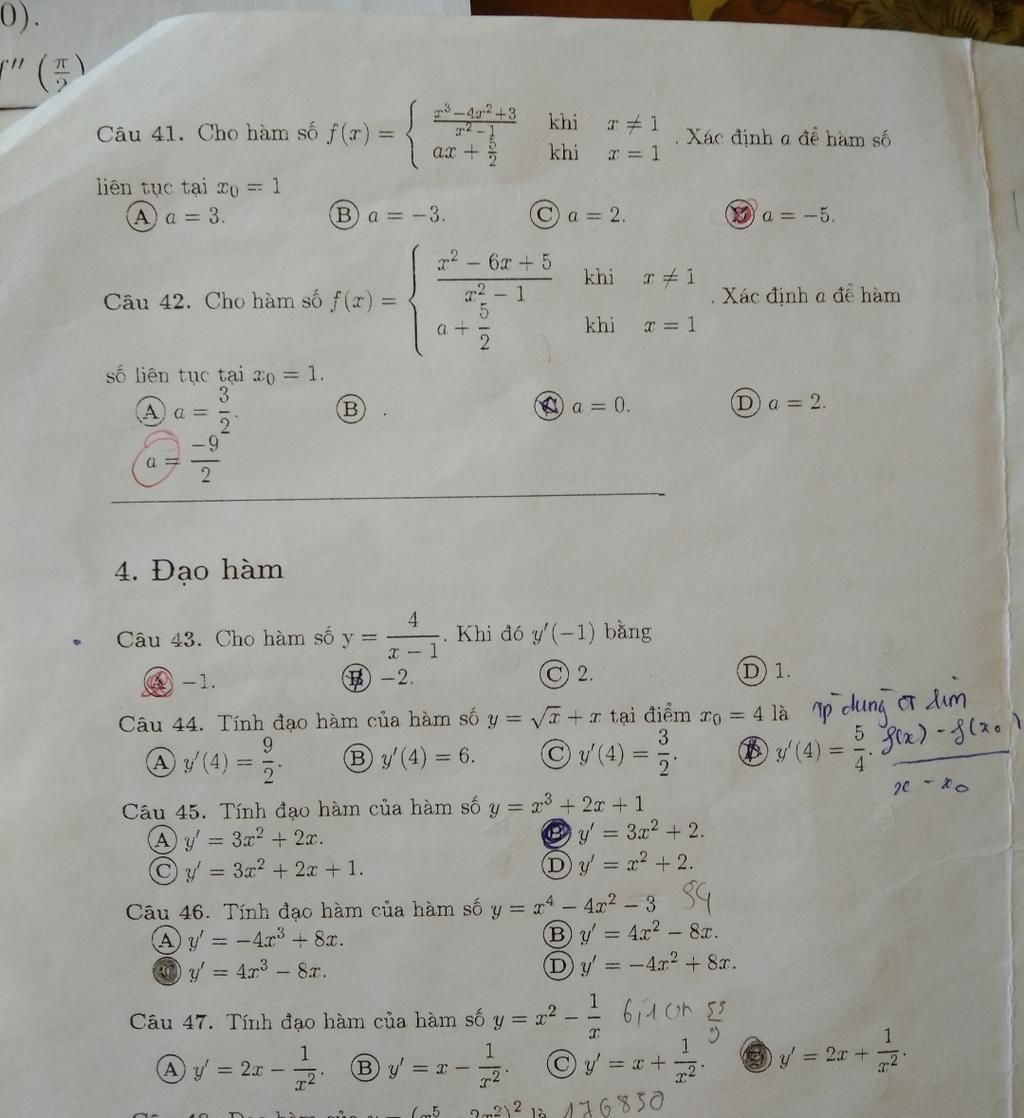 0).
f'' (π/2)
Câu 41. Cho hàm số f(x) = { (x³ − 4x² + 3)/(x² − 1) khi x ≠ 1
ax + 5/2 khi x = 1 . Xác định a để hàm số
liên tục tại x₀ = 1
Ⓐ a = 3. Ⓑ a = −3. Ⓒ a = 2. Ⓓ a = −5.
Câu 42. Cho hàm số f(x) = { (x² − 6x + 5)/(x² − 1) khi x ≠ 1
a + 5/2 khi x = 1 . Xác định a để hàm
số liên tục tại x₀ = 1.
Ⓐ a = 3/2. Ⓑ . Ⓒ a = 0. Ⓓ a = 2.
a = −9/2
4. Đạo hàm
Câu 43. Cho hàm số y = 4/(x − 1). Khi đó y′(−1) bằng
Ⓐ −1. Ⓑ −2. Ⓒ 2. Ⓓ 1.
Câu 44. Tính đạo hàm của hàm số y = √x + x tại điểm x₀ = 4 là dung lim
Ⓐ y′(4) = 9/2. Ⓑ y′(4) = 6. Ⓒ y′(4) = 3/2. Ⓓ y′(4) = 5/4. (f(x) − f(x₀))/(x − x₀)
Câu 45. Tính đạo hàm của hàm số y = x³ + 2x + 1
Ⓐ y′ = 3x² + 2x. Ⓑ y′ = 3x² + 2.
Ⓒ y′ = 3x² + 2x + 1. Ⓓ y′ = x² + 2.
Câu 46. Tính đạo hàm của hàm số y = x⁴ − 4x² − 3
Ⓐ y′ = −4x³ + 8x. Ⓑ y′ = 4x² − 8x.
Ⓒ y′ = 4x³ − 8x. Ⓓ y′ = −4x² + 8x.
Câu 47. Tính đạo hàm của hàm số y = x² − 1/x
Ⓐ y′ = 2x − 1/x². Ⓑ y′ = x − 1/x². Ⓒ y′ = x + 1/x². Ⓓ y′ = 2x + 1/x².
là 176850